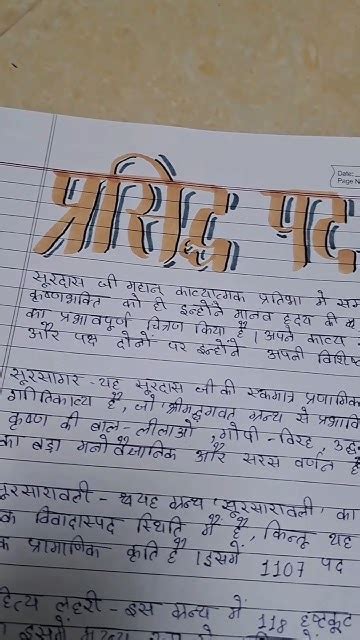 Date:
Page N
प्रसिद्ध पद
सूरदास जी महान् काव्यात्मक प्रतिभा से
कृष्णभक्ति को ही इन्होंने मानव हृदय की
का प्रभावपूर्ण चित्रण किया है। अपने काव्य
और पक्ष दोनों पर इन्होंने अपनी विशिष्ट
सूरसागर - यह सूरदास जी की एकमात्र प्रमाणिक
गीतिकाव्य है, जो श्रीमद्भगवत ग्रन्थ से प्रभावि
कृष्ण की बाल-लीलाओं, गोपी-विरह,
का बड़ा मनोवैज्ञानिक और सरस वर्णन है
सूरसारावली - यह ग्रन्थ 'सूरसारावली' का
विवादास्पद स्थिति में है, किन्तु यह
प्रामाणिक कृति है। इसमें 1107 पद
लहरी - इस ग्रन्थ में 118